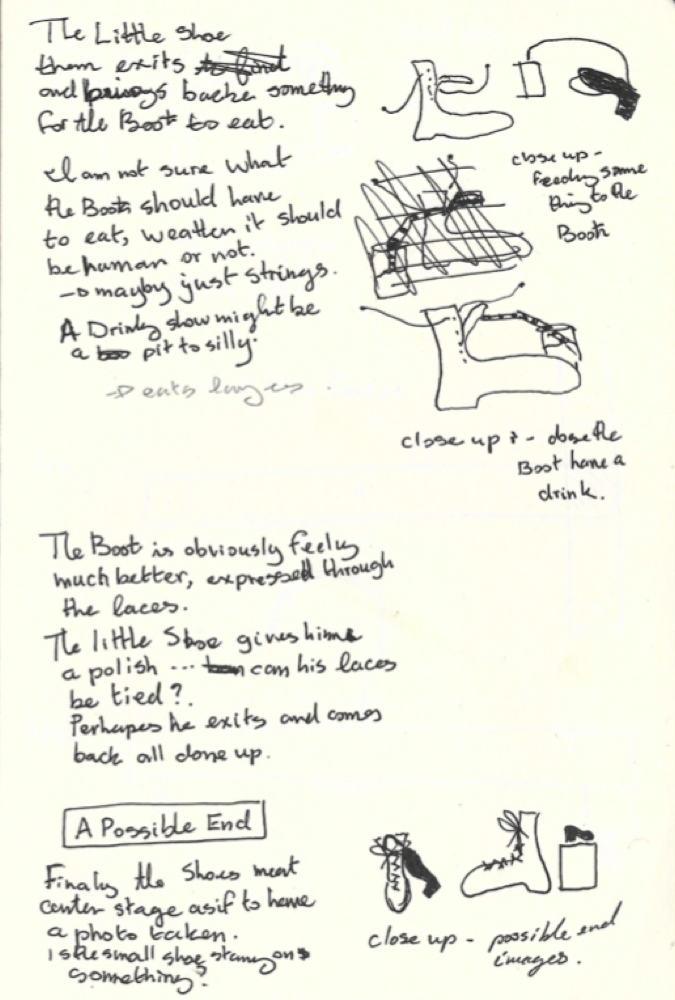 The Little Shoe
them exits to find
and brings backe something
for the Boot to eat.
I am not sure what
the Boot should have
to eat, weatten it should
be human or not.
→ mayby just strings.
A Drinky show might be
a too pit to silly.
→ eats
close up -
Feeding some
thing to the
Boot
close up ? - dose the
Boot have a
drink.
The Boot is obviously feely
much better, expressed through
the laces.
The little Shoe gives him
a polish ... can his laces
be tied?.
Perhapes he exits and comes
back all done up.
A Possible End
Finaly the Shoes meat
center stage as if to have
a photo taken.
is the small shoe standing on
something?
close up - possible end
images.